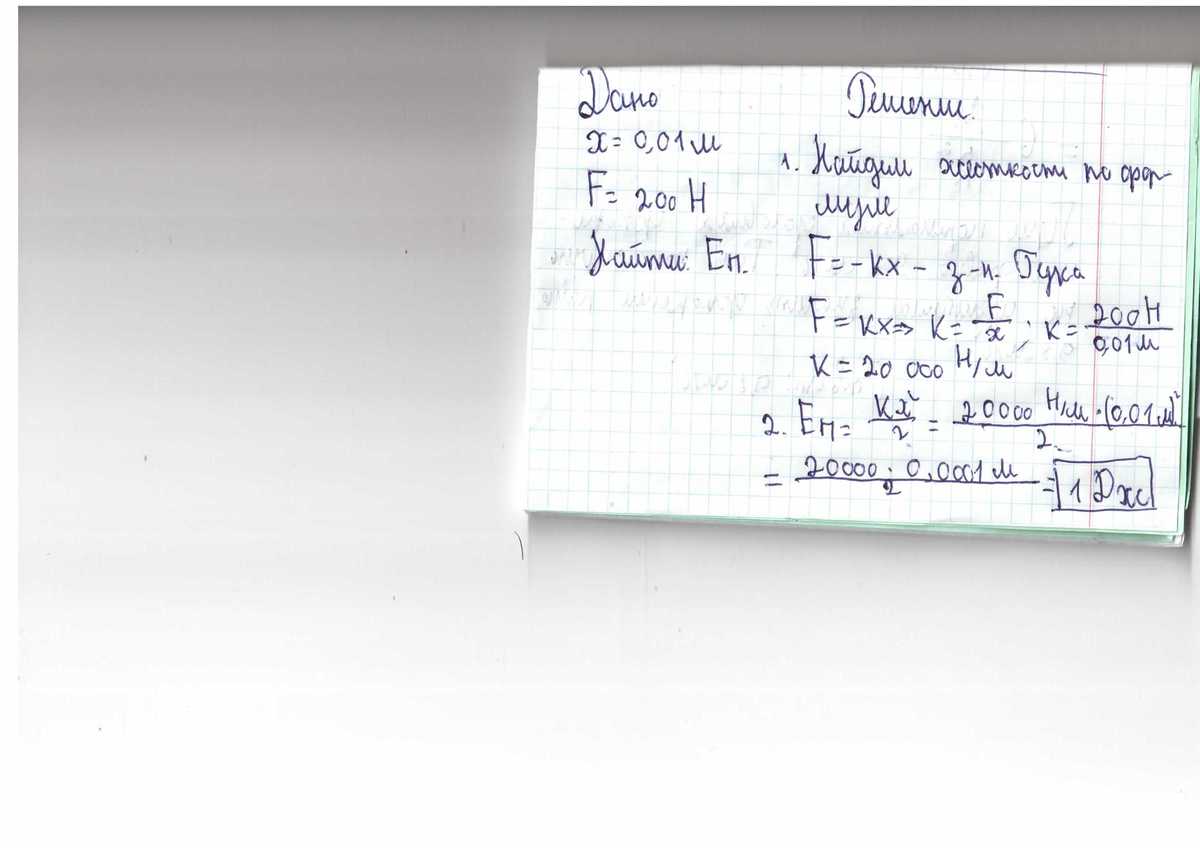 Дано
x = 0,01 м
F = 200 Н
Найти: Eп.
Решение.
1. Найдем жесткость по фор-
муле
F = -kx - з-н. Гука
F = kx => k = F/x ; k = 200 Н/0,01 м
k = 20 000 Н/м
2. Eп = kx²/2 = 20000 Н/м · (0,01 м)²/2
= 20000 · 0,0001 м/2 = 1 Дж